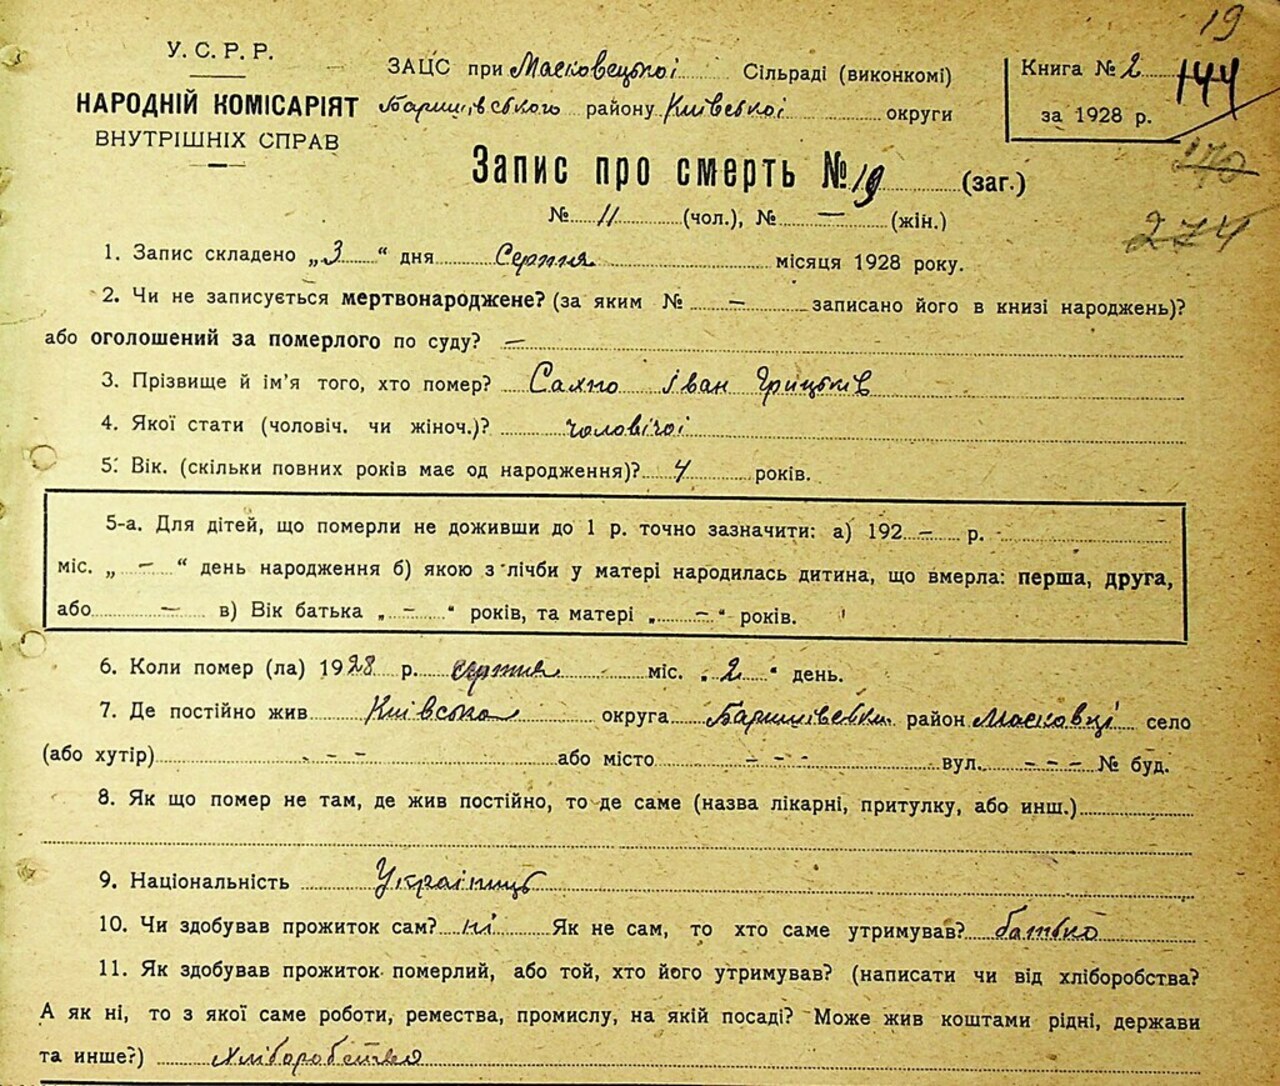 19
У. С. Р. Р.
НАРОДНІЙ КОМІСАРІЯТ
ВНУТРІШНІХ СПРАВ
ЗАЦС при Масковецької Сільраді (виконкомі)
Баришівського району Київської округи
Книга № 2 144
за 1928 р.
270
274
Запис про смерть № 19 (заг.)
№ 11 (чол.), № — (жін.)
1. Запис складено „3“ дня Серпня місяця 1928 року.
2. Чи не записується мертвонароджене? (за яким № — записано його в книзі народжень)?
або оголошений за померлого по суду? —
3. Прізвище й ім’я того, хто помер? Сахно Іван Грицьків
4. Якої стати (чоловіч. чи жіноч.)? чоловічої
5. Вік. (скільки повних років має од народження)? 4 років.
5-а. Для дітей, що померли не доживши до 1 р. точно зазначити: а) 192 — р.
міс. „ — “ день народження б) якою з лічби у матері народилась дитина, що вмерла: перша, друга,
або — в) Вік батька „ — “ років, та матері „ — “ років.
6. Коли помер (ла) 1928 р. серпня міс. „2“ день.
7. Де постійно жив Київська округа Баришівськ. район Масковці село
(або хутір) - - - або місто - - - вул. - - - № буд.
8. Як що помер не там, де жив постійно, то де саме (назва лікарні, притулку, або инш.)
9. Національність Українець
10. Чи здобував прожиток сам? ні Як не сам, то хто саме утримував? батько
11. Як здобував прожиток померлий, або той, хто його утримував? (написати чи від хліборобства?
А як ні, то з якої саме роботи, ремества, промислу, на якій посаді? Може жив коштами рідні, держави
та инше?) хліборобство